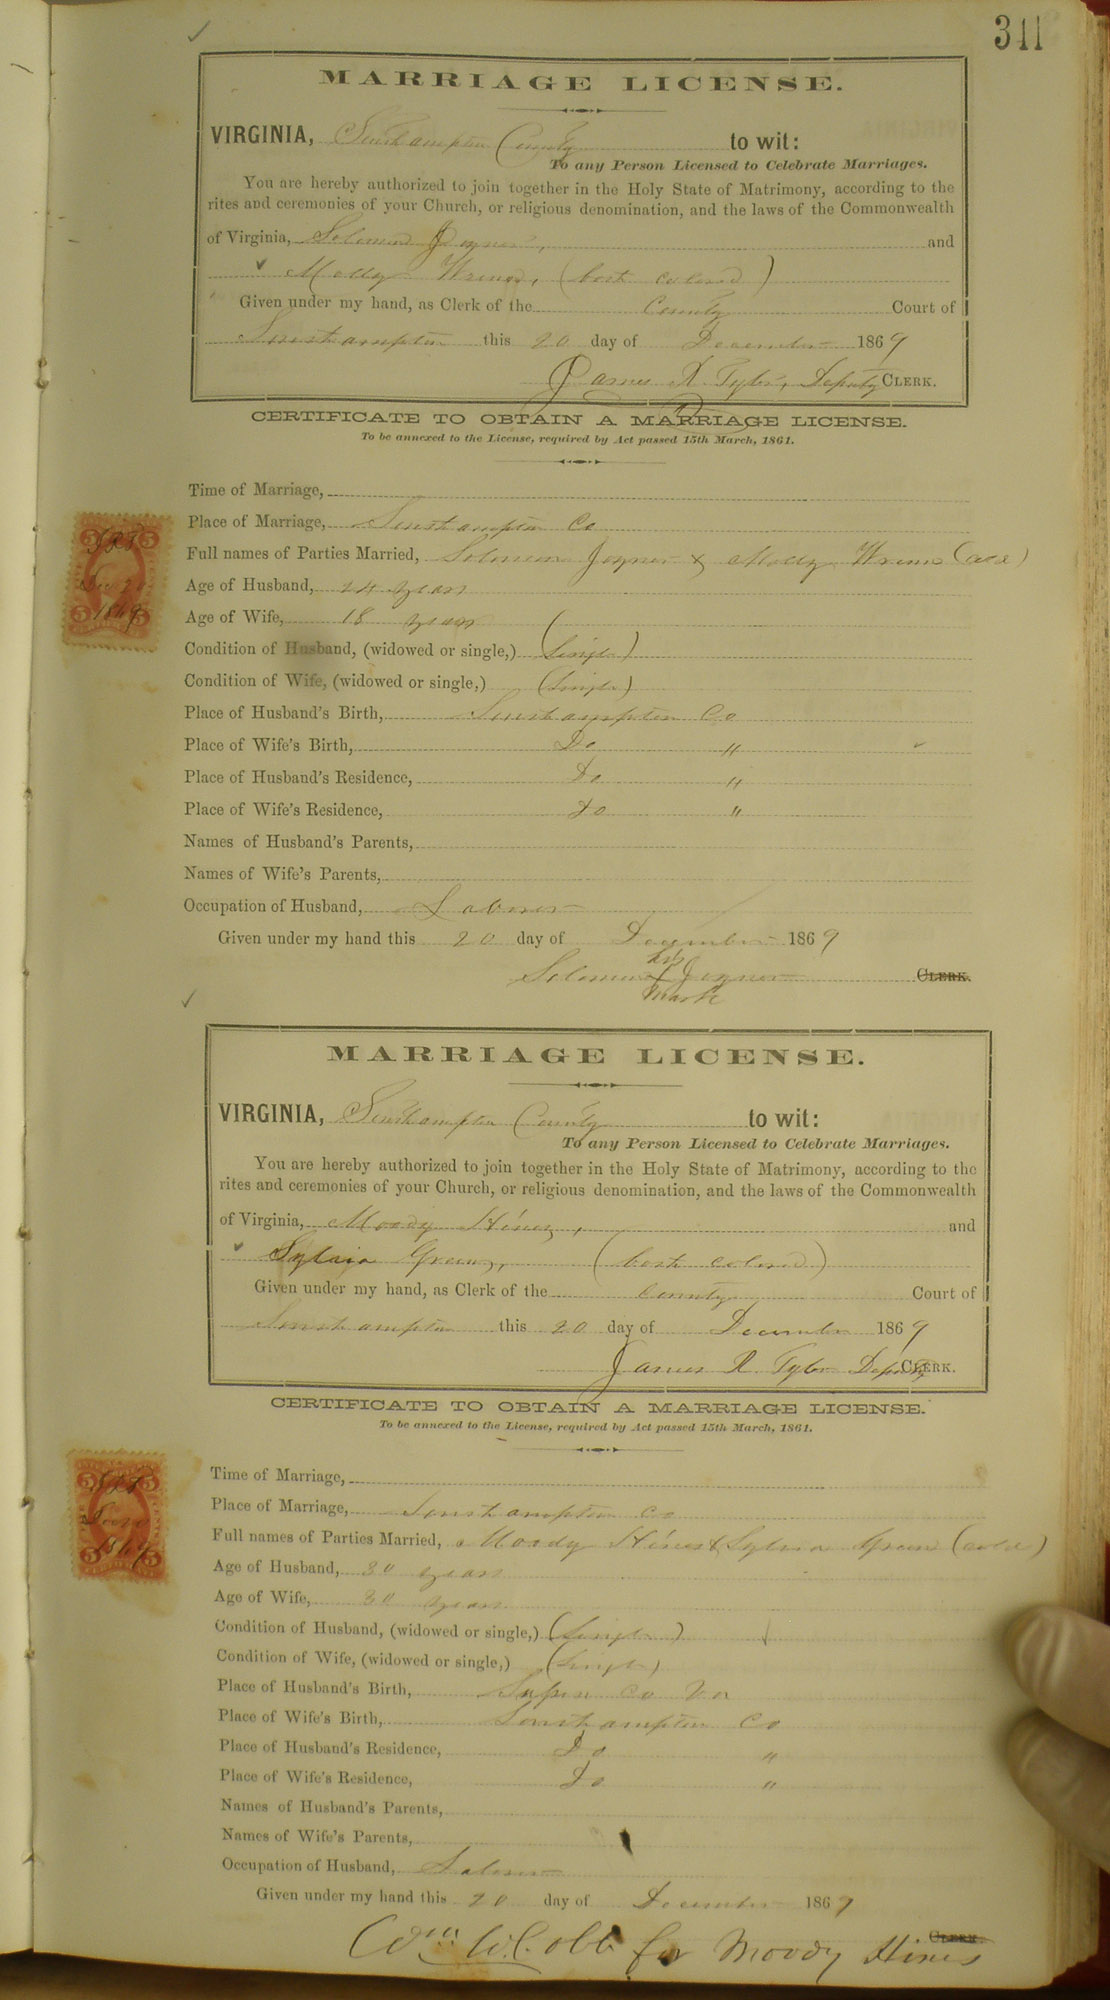 311
MARRIAGE LICENSE.
VIRGINIA, Southampton County to wit:
To any Person Licensed to Celebrate Marriages.
You are hereby authorized to join together in the Holy State of Matrimony, according to the
rites and ceremonies of your Church, or religious denomination, and the laws of the Commonwealth
of Virginia, Solomon Joyner, and
Molly (both colored)
Given under my hand, as Clerk of the County Court of
Southampton this 20 day of December 1869
James R. Tyler, Deputy CLERK.
CERTIFICATE TO OBTAIN A MARRIAGE LICENSE.
To be annexed to the License, required by Act passed 15th March, 1861.
Time of Marriage,
Place of Marriage, Southampton Co
Full names of Parties Married, Solomon Joyner & Molly (cold)
Age of Husband, 24 years
Age of Wife, 18 years
Condition of Husband, (widowed or single,) (Single)
Condition of Wife, (widowed or single,) (Single)
Place of Husband's Birth, Southampton Co
Place of Wife's Birth, Do "
Place of Husband's Residence, Do "
Place of Wife's Residence, Do "
Names of Husband's Parents,
Names of Wife's Parents,
Occupation of Husband, Laborer
Given under my hand this 20 day of December 1869
his
Solomon X Joyner CLERK.
mark
5 5
JRT
Dec 20
1869
5 5
MARRIAGE LICENSE.
VIRGINIA, Southampton County to wit:
To any Person Licensed to Celebrate Marriages.
You are hereby authorized to join together in the Holy State of Matrimony, according to the
rites and ceremonies of your Church, or religious denomination, and the laws of the Commonwealth
of Virginia, Moody Hines, and
Sylvia Green, (both colored)
Given under my hand, as Clerk of the County Court of
Southampton this 20 day of December 1869
James R. Tyler Deputy CLERK.
CERTIFICATE TO OBTAIN A MARRIAGE LICENSE.
To be annexed to the License, required by Act passed 15th March, 1861.
Time of Marriage,
Place of Marriage, Southampton Co
Full names of Parties Married, Moody Hines & Sylvia Green (cold)
Age of Husband, 30 years
Age of Wife, 30 years
Condition of Husband, (widowed or single,) (Single)
Condition of Wife, (widowed or single,) (Single)
Place of Husband's Birth, Co Va
Place of Wife's Birth, Southampton Co
Place of Husband's Residence, Do "
Place of Wife's Residence, Do "
Names of Husband's Parents,
Names of Wife's Parents,
Occupation of Husband, Laborer
Given under my hand this 20 day of December 1869
CLERK.
Wm W Cobb for Moody Hines
5 5
JRT
Dec 20
1869
5 5